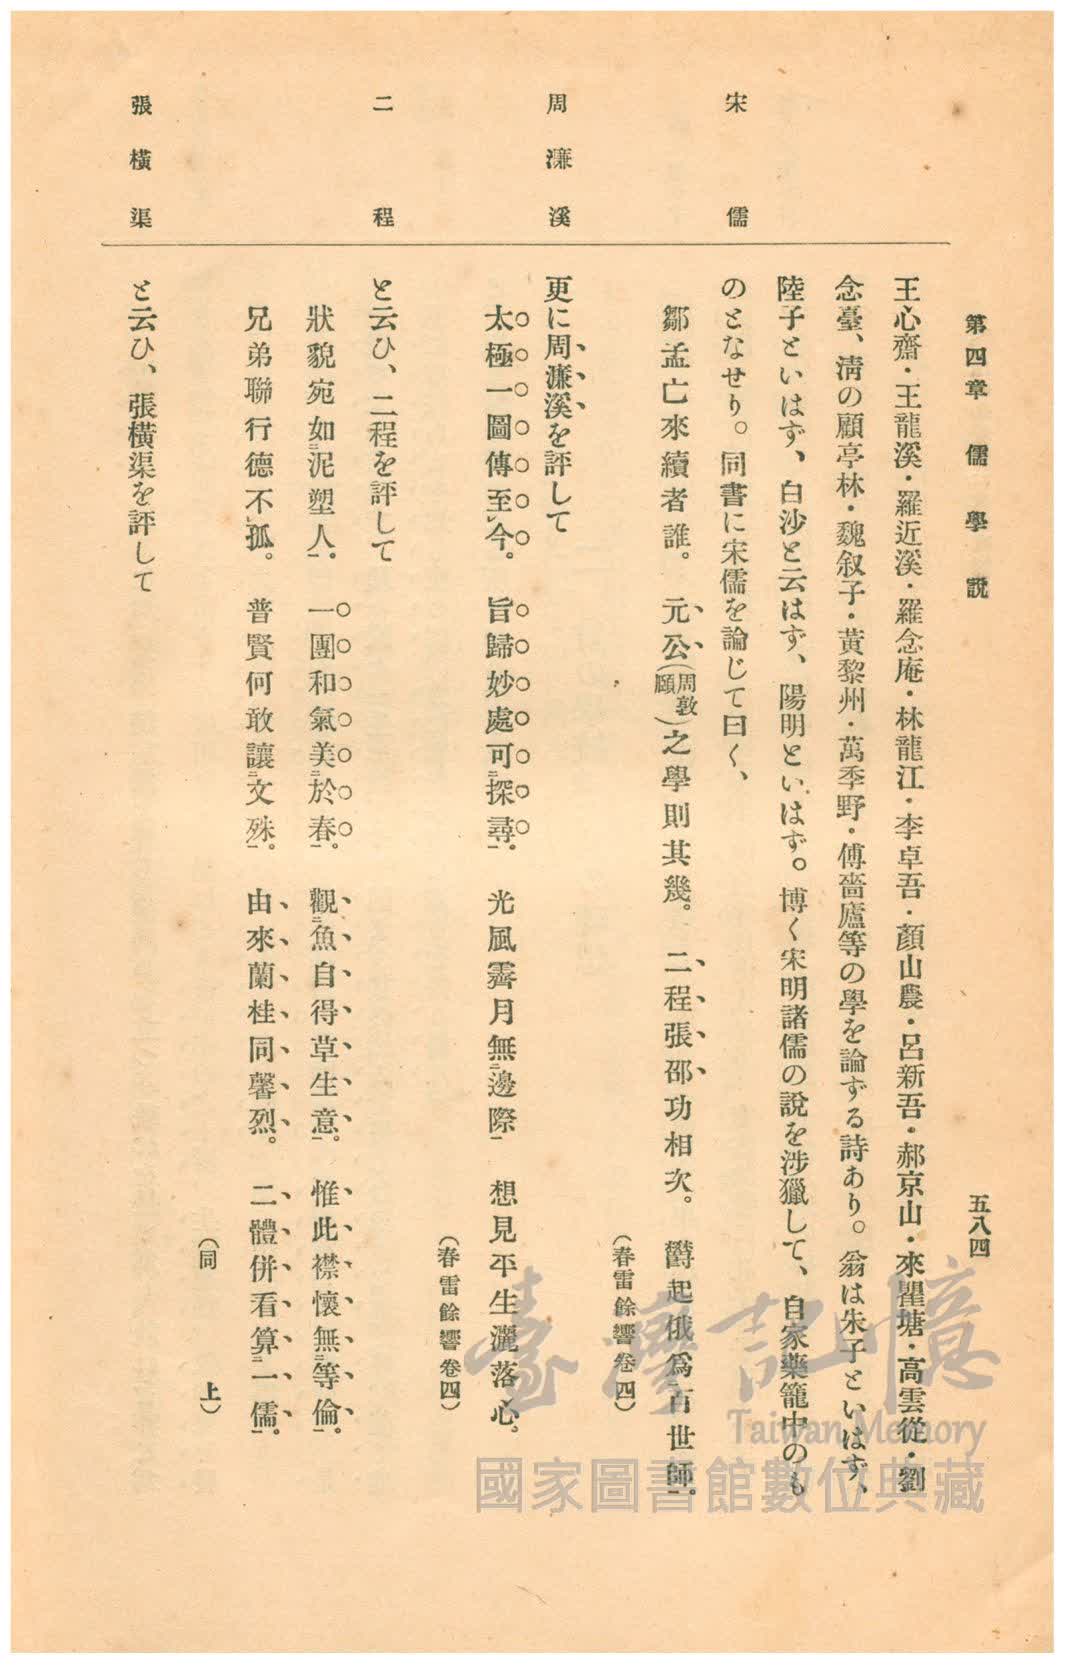 第四章 儒學説
五八四
王心齋・王龍溪・羅近溪・羅念庵・林龍江・李卓吾・顏山農・呂新吾・郝京山・來瞿塘・高雲從・劉
念臺、淸の顧亭林・魏叙子・黃黎州・萬季野・傅嗇廬等の學を論ずる詩あり。翁は朱子といはず、
陸子といはず、白沙と云はず、陽明といはず。博く宋明諸儒の説を涉獵して、自家藥籠中のも
宋儒
のとなせり。同書に宋儒を論じて曰く、
鄒孟亡來續者誰。 元公(周敦頤)之學則其幾。 二程張邵功相次。 欝起俄爲百世師。
(春雷餘響卷四)
周濂溪
更に周濂溪を評して
太極一圖傳至今。 旨歸妙處可探尋。 光風霽月無邊際 想見平生灑落心。
(春雷餘響卷四)
二程
と云ひ、二程を評して
狀貌宛如泥塑人。 一團和氣美於春。 觀魚自得草生意。 惟此襟懷無等倫。
兄弟聯行德不孤。 普賢何敢讓文殊。 由來蘭桂同馨烈。 二體併看算一儒。
(同 上)
張橫渠
と云ひ、張橫渠を評して
臺灣記憶
Taiwan Memory
國家圖書館數位典藏